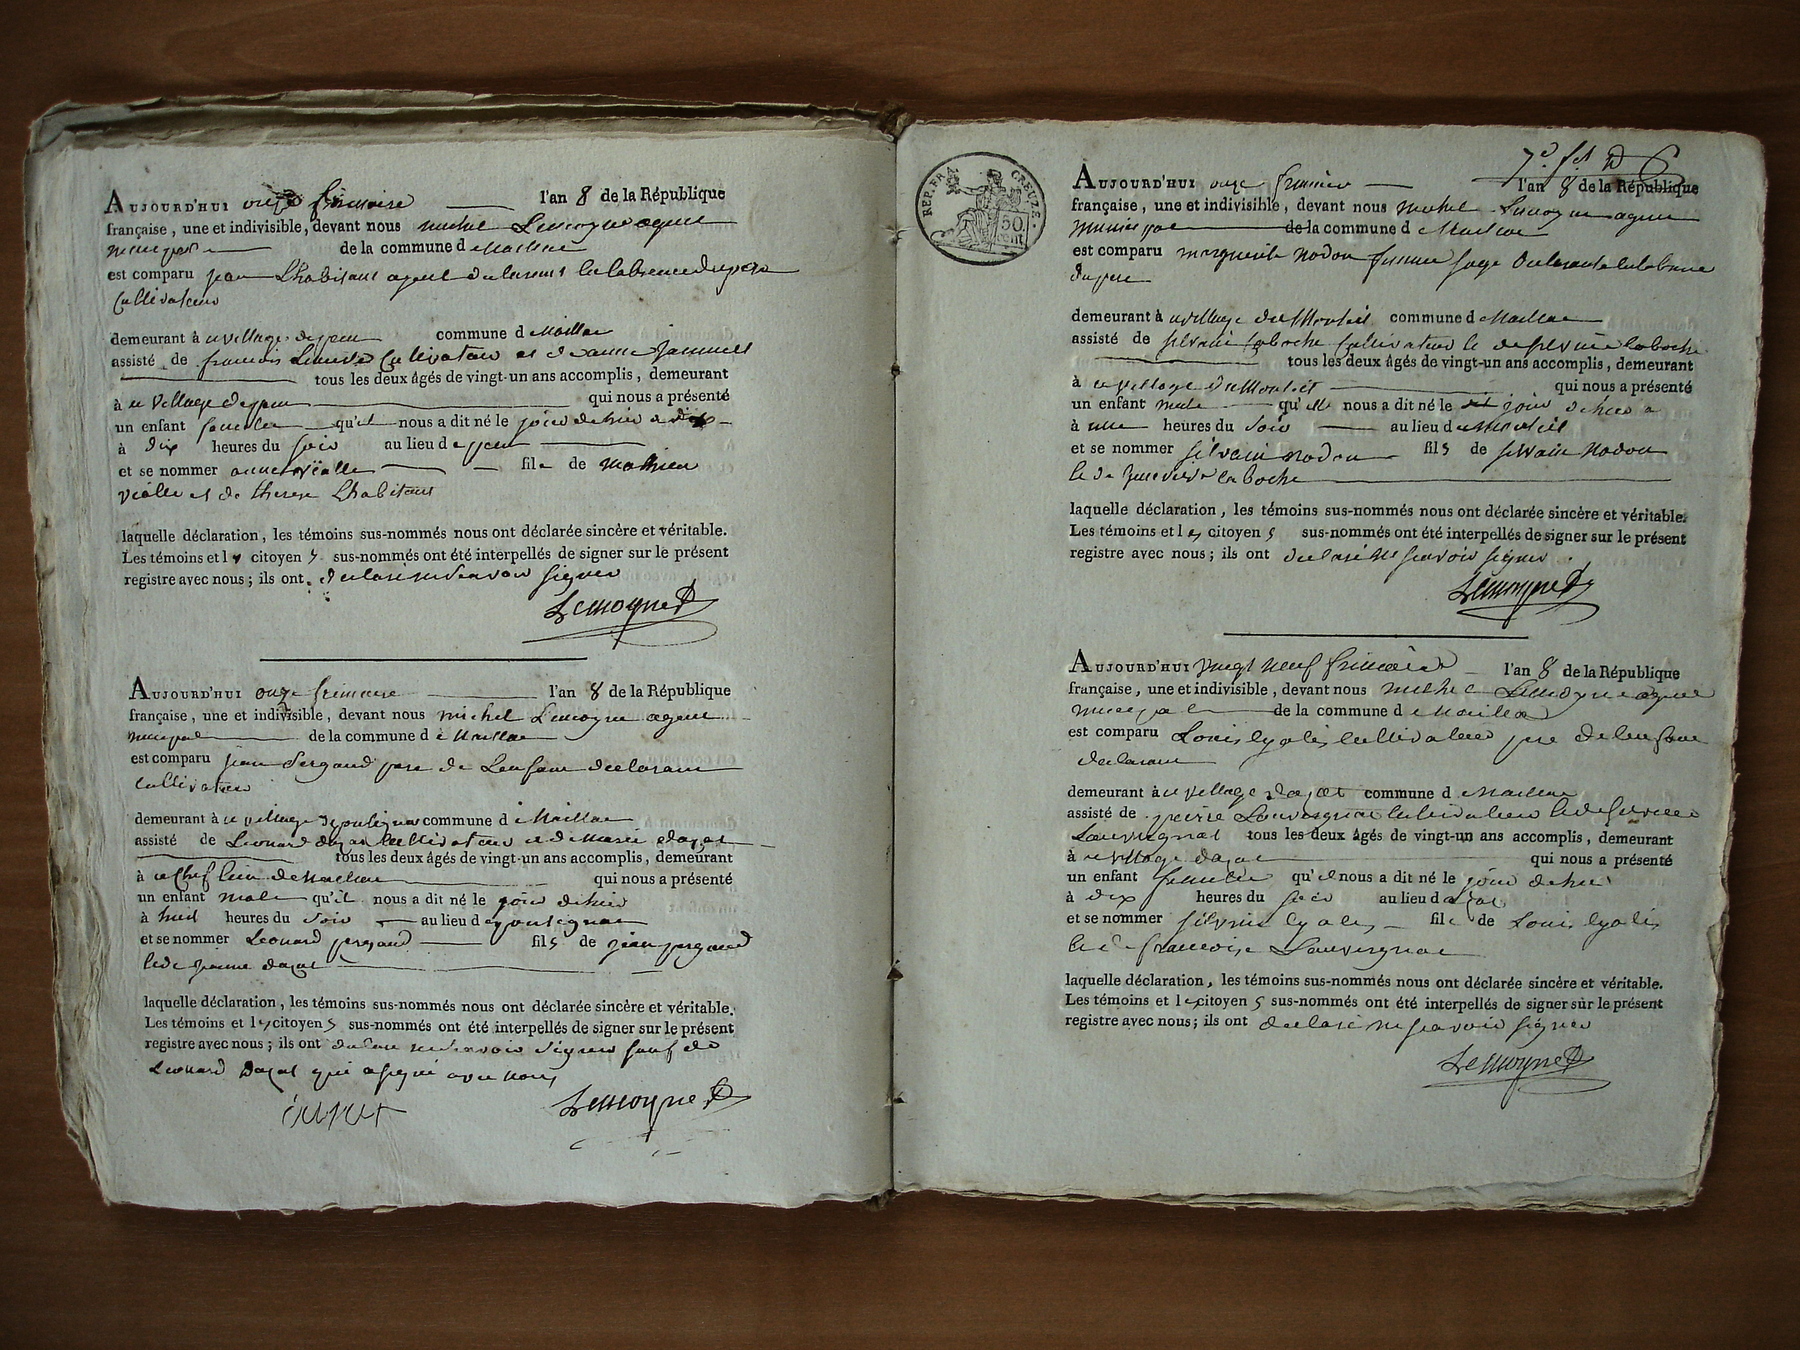 AUJOURD'HUI onze frimaire l'an 8 de la République
française, une et indivisible, devant nous michel Lemoyne agent
municipal de la commune d Maillac
est comparu jean Lhabitant agent declarant la labsence du pere
Cultivateur
demeurant à u village de commune d Maillac
assisté de francois Cultivateur et de anne
tous les deux âgés de vingt-un ans accomplis, demeurant
à u village de qui nous a présenté
un enfant femelle qu'il nous a dit né le jour de hier a
à Dix heures du soir au lieu d
et se nommer anne vialle fille de mathieu
vialle et de therese Lhabitant
laquelle déclaration, les témoins sus-nommés nous ont déclarée sincère et véritable.
Les témoins et les citoyens sus-nommés ont été interpellés de signer sur le présent
registre avec nous; ils ont declaré ne savoir signer
Lemoyne
AUJOURD'HUI onze frimaire l'an 8 de la République
française, une et indivisible, devant nous michel Lemoyne agent
municipal de la commune d Maillac
est comparu jean pergaud pere de Lenfant declarant
cultivateur
demeurant à u village commune d Maillac
assisté de Leonard dazat cultivateur et de Marie dazat
tous les deux âgés de vingt-un ans accomplis, demeurant
à u Chef lieu de Maillac qui nous a présenté
un enfant male qu'il nous a dit né le jour de hier
à huit heures du soir au lieu d
et se nommer Leonard pergaud fils de jean pergaud
et de jeanne dazat
laquelle déclaration, les témoins sus-nommés nous ont déclarée sincère et véritable.
Les témoins et les citoyens sus-nommés ont été interpellés de signer sur le présent
registre avec nous; ils ont declaré ne savoir signer sauf de
Leonard Dazat qui a signé avec nous
Lemoyne
REP. FRA CREUZE.
50 cent
AUJOURD'HUI onze frimaire l'an 8 de la République
française, une et indivisible, devant nous michel Lemoyne agent
municipal de la commune d Maillac
est comparu marguerite nadon femme sage declarante la labsence
du pere
demeurant à u village du Monteil commune d Maillac
assisté de silvain laboche Cultivateur et de silvine laboche
tous les deux âgés de vingt-un ans accomplis, demeurant
à u village du Monteil qui nous a présenté
un enfant male qu'elle nous a dit né le jour de hier a
à une heures du soir au lieu du Monteil
et se nommer silvain nadon fils de silvain nadon
et de Genevieve laboche
laquelle déclaration, les témoins sus-nommés nous ont déclarée sincère et véritable.
Les témoins et les citoyens sus-nommés ont été interpellés de signer sur le présent
registre avec nous; ils ont declaré ne savoir signer
Lemoyne
AUJOURD'HUI vingt neuf frimaire l'an 8 de la République
française, une et indivisible, devant nous michel Lemoyne agent
municipal de la commune d Maillac
est comparu Louis lyalis cultivateur pere de lenfant
declarant
demeurant à u village dazat commune d Maillac
assisté de pierre Lauvergnat cultivateur et de
Lauvergnat tous les deux âgés de vingt-un ans accomplis, demeurant
à u village dazat qui nous a présenté
un enfant femelle qu'il nous a dit né le jour de hier
à dix heures du soir au lieu d azat
et se nommer silvine lyalis fille de Louis lyalis
et de francoise Lauvergnat
laquelle déclaration, les témoins sus-nommés nous ont déclarée sincère et véritable.
Les témoins et les citoyens sus-nommés ont été interpellés de signer sur le présent
registre avec nous; ils ont declaré ne savoir signer
Lemoyne